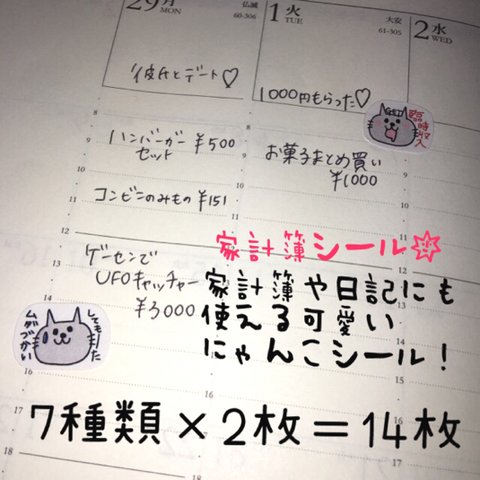 29 月 MON
仏滅
60-306
1 火 TUE
大安
61-305
2 水 WED
彼氏とデート♡
1000円もらった♡
GET!
臨時収入
ハンバーガー ¥500
セット
お菓子まとめ買い
¥1000
コンビニのみもの ¥151
ゲーセンで
UFOキャッチャー
¥3000
してもーた
ムダづかい
家計簿シール
家計簿や日記にも
使える可愛い
にゃんこシール!
7種類×2枚=14枚
8
9
10
11
12
13
14
16
17
18
8
9
10
11
12
16
17
18
12
17